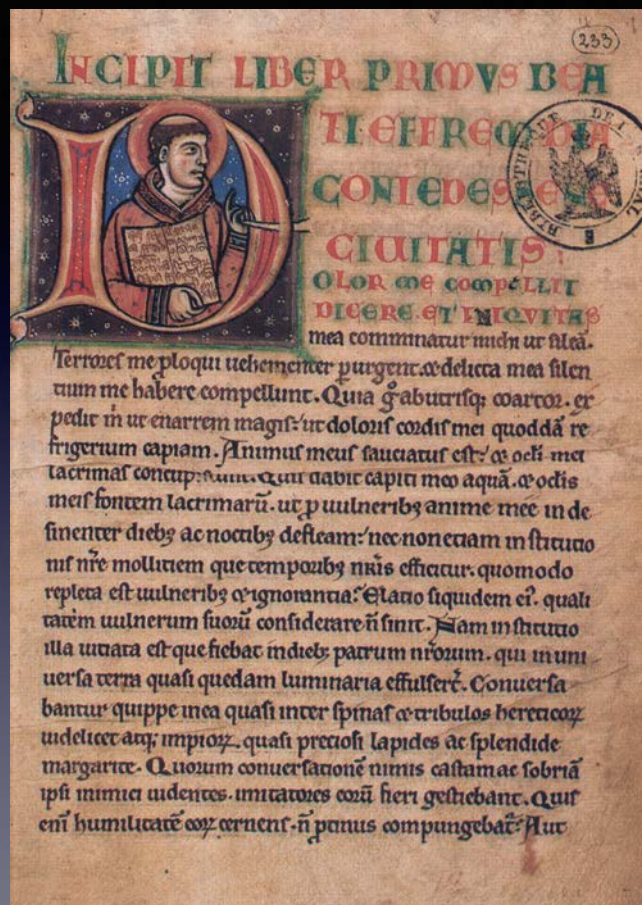 233
INCIPIT LIBER PRIMVS BEA
TI EFFREM DIA
CONI EDESSENE
CIUITATIS:
OLOR ME COMPELLIT
DICERE. ET INIQVITAS
mea comminatur michi ut sileā.
Terrores me ꝓloqui uehementer ꝑurgent. & delicta mea silen
tium me habere compellunt. Quia g̊ ab utrisq; coartor. ex
pedit m̄ ut enarrem magis: ut doloris cordis mei quoddā re
frigerium capiam. Animus meus sauciatus est: & ocli mei
lacrimas concupiscunt. Quis dabit capiti meo aquā. & oclis
meis fontem lacrimarū. ut ꝓ uulneribꝫ anime mee in de
sinenter diebꝫ ac noctibꝫ defleam: nec non etiam institutio
nis nr̄e mollitiem que temporibꝫ nr̄is efficitur. quomodo
repleta est uulneribꝫ & ignorantia? Elatio siquidem ei᷒. quali
tatem uulnerum suorū considerare n̄ sinit. Nam institutio
illa uitiata est que fiebat in diebꝫ patrum nr̄orum. qui in uni
uersa terra quasi quedam luminaria effulser̄t. Conuersa
bantur quippe in ea quasi inter spinas & tribulos hereticoꝝ
uidelicet atq; impioꝝ. quasi preciosi lapides ac splendide
margarite. Quorum conuersationē nimis castam ac sobriā
ipsi inimici uidentes. imitatores eorū fieri gestiebant. Quis
eni humilitatē eoꝝ cernens. n̄ ꝓtinus compungebat᷑? Aut